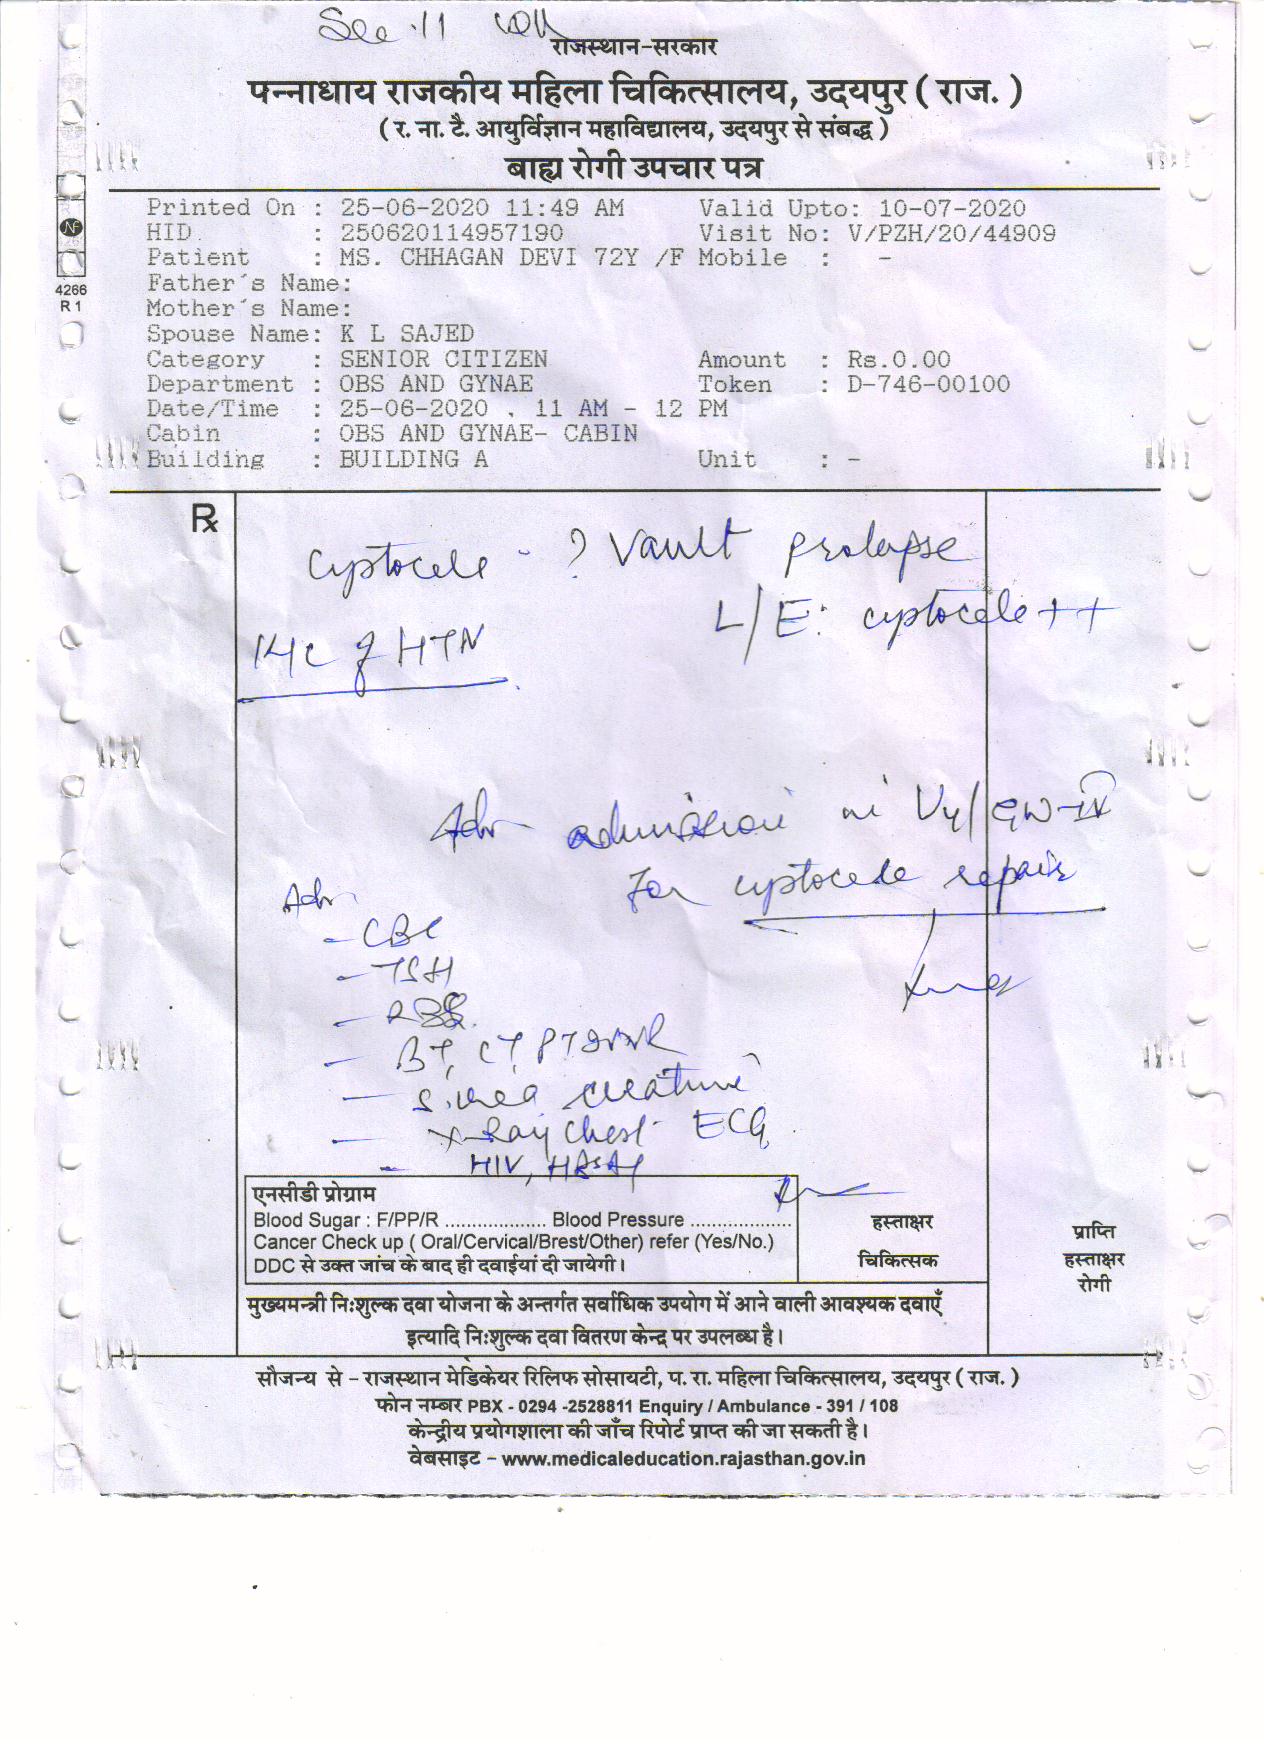 राजस्थान-सरकार
पन्नाधाय राजकीय महिला चिकित्सालय, उदयपुर ( राज. )
( र. ना. टै. आयुर्विज्ञान महाविद्यालय, उदयपुर से संबद्ध )
बाह्य रोगी उपचार पत्र
Printed On : 25-06-2020 11:49 AM Valid Upto: 10-07-2020
HID : 250620114957190 Visit No: V/PZH/20/44909
Patient : MS. CHHAGAN DEVI 72Y /F Mobile : -
Father's Name:
Mother's Name:
Spouse Name: K L SAJED
Category : SENIOR CITIZEN Amount : Rs.0.00
Department : OBS AND GYNAE Token : D-746-00100
Date/Time : 25-06-2020 , 11 AM - 12 PM
Cabin : OBS AND GYNAE- CABIN
Building : BUILDING A Unit : -
4266
R 1
Rx
cyptocele - ? Vault prolapse
L/E: cyptocele ++
H/C of HTN
Adv admission in
for cyptocele repair
Adv
- CBC
- TSH
- RBS
- BT, CT, PT INR
- S. urea creatinine
- X-Ray Chest ECG
- HIV, HBsAg
एनसीडी प्रोग्राम
Blood Sugar : F/PP/R ................... Blood Pressure ...................
Cancer Check up ( Oral/Cervical/Brest/Other) refer (Yes/No.)
DDC से उक्त जांच के बाद ही दवाईयां दी जायेगी।
हस्ताक्षर
चिकित्सक
प्राप्ति
हस्ताक्षर
रोगी
मुख्यमन्त्री निःशुल्क दवा योजना के अन्तर्गत सर्वाधिक उपयोग में आने वाली आवश्यक दवाएँ
इत्यादि निःशुल्क दवा वितरण केन्द्र पर उपलब्ध है।
सौजन्य से - राजस्थान मेडिकेयर रिलिफ सोसायटी, प. रा. महिला चिकित्सालय, उदयपुर ( राज. )
फोन नम्बर PBX - 0294 -2528811 Enquiry / Ambulance - 391 / 108
केन्द्रीय प्रयोगशाला की जाँच रिपोर्ट प्राप्त की जा सकती है।
वेबसाइट - www.medicaleducation.rajasthan.gov.in